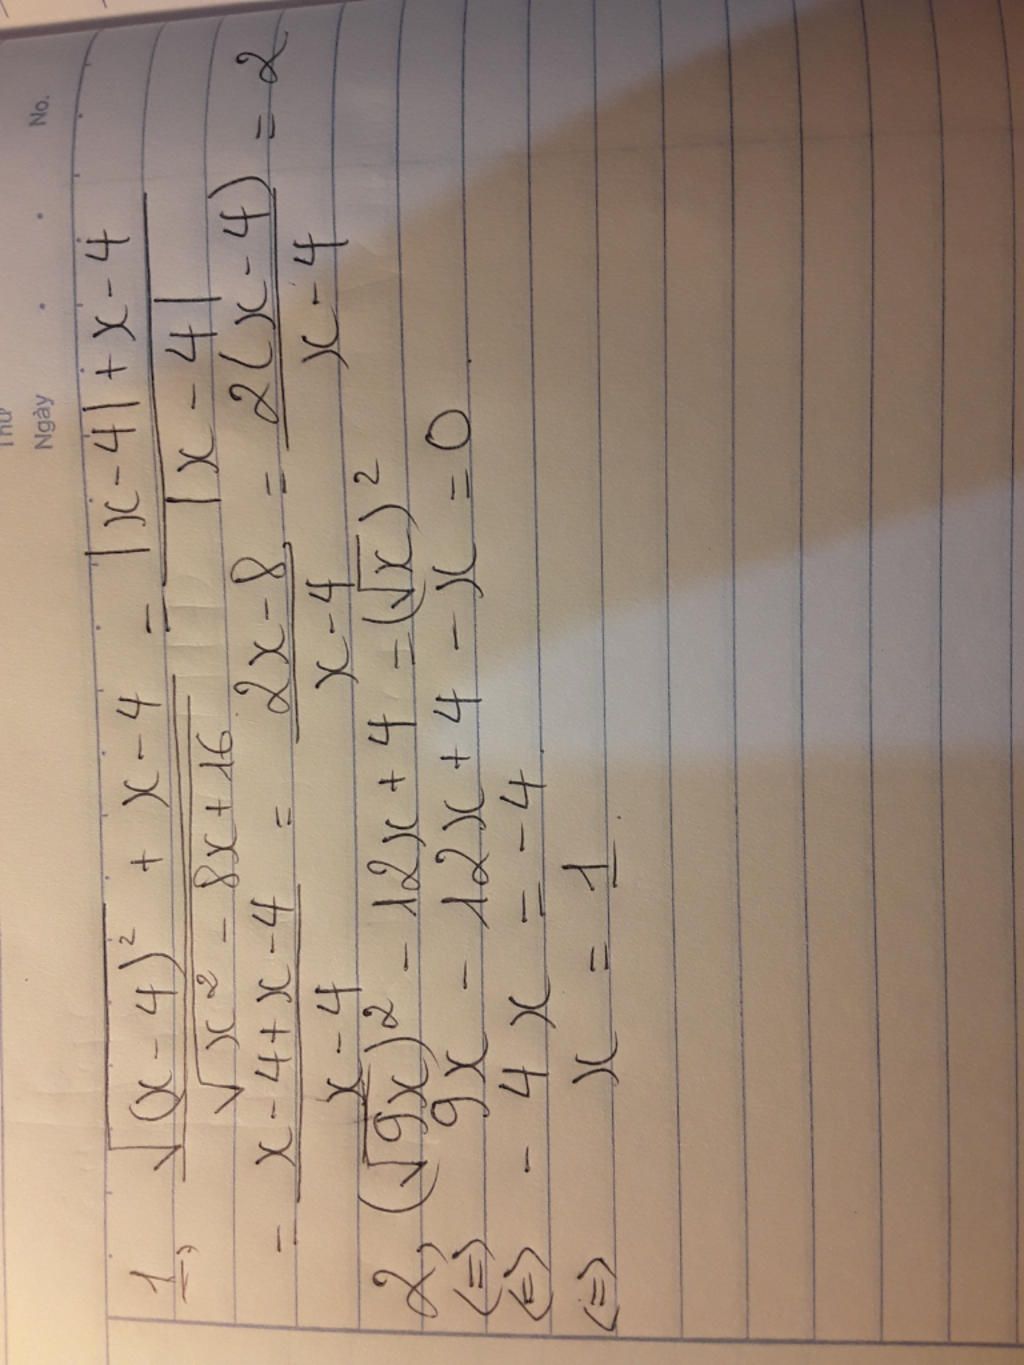 Thứ
Ngày No.
1, \frac{\sqrt{(x-4)^2} + x - 4}{\sqrt{x^2 - 8x + 16}} = \frac{|x-4| + x - 4}{|x-4|}
= \frac{x-4+x-4}{x-4} = \frac{2x-8}{x-4} = \frac{2(x-4)}{x-4} = 2
2, (\sqrt{9x})^2 - 12x + 4 = (\sqrt{x})^2
(=) 9x - 12x + 4 - x = 0
(=) - 4x = -4
(=) x = 1